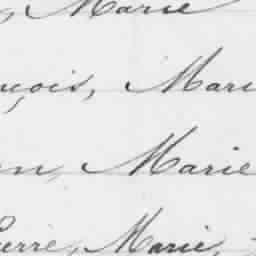 , Marie
çois, Mari
en, Marie
ierre, Marie,